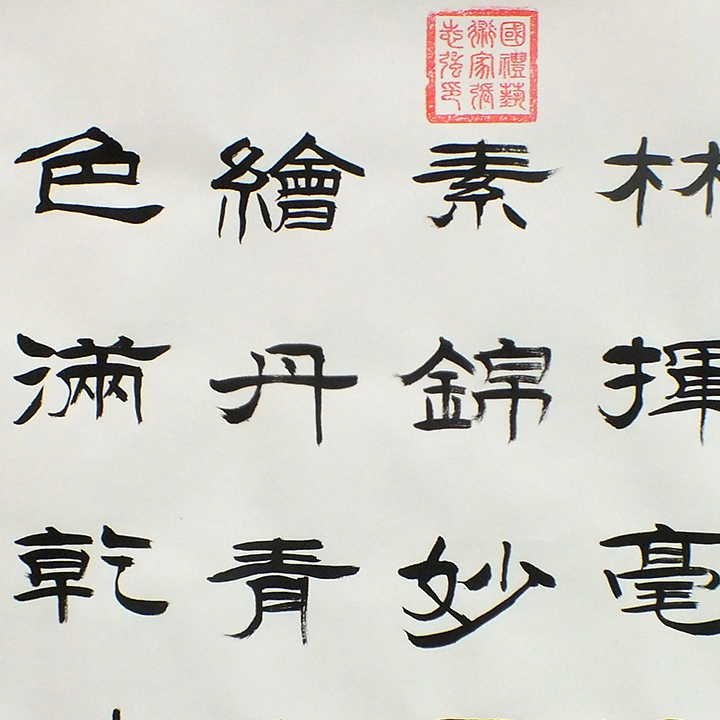 國禮藝
術家張
志弦印
林揮毫
素錦妙
繪丹青
色滿乾